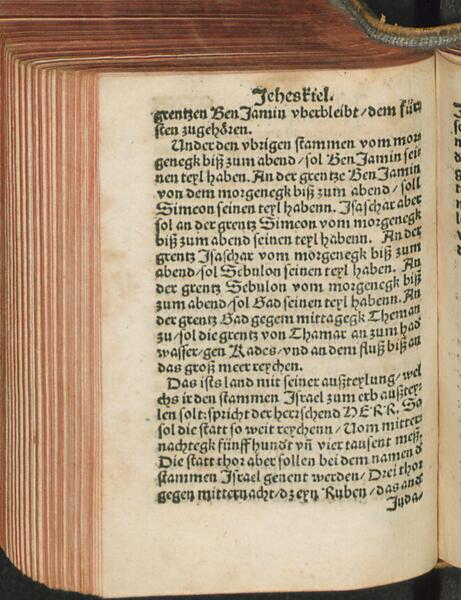 Jeheskiel.
grentzen BenJamin vberbleibt/dem für
sten zugehören.
Under den vbrigen stammen vom mor
genegk biß zum abend/sol BenJamin sei
nen teyl haben. An der grentze BenJamin
von dem morgenegk biß zum abend/soll
Simeon seinen teyl habenn. Isaschar aber
sol an der grentz Simeon vom morgenegk
biß zum abend seinen teyl habenn. An der
grentz Isaschar vom morgenegk biß zum
abend/sol Sebulon seinen teyl haben. An
der grentz Sebulon vom morgenegk biß
zum abend/sol Gad seinen teyl habenn. An
der grentz Gad gegem mittagegk Theman
zu/sol die grentz von Thamar an zum had
wasser/gen Kades/vnd an dem fluß biß an
das groß meer reychen.
Das ists land mit seiner außteylung/wel
chs ir den stammen Israel zum erb außtey-
len solt: spricht der herrschend HERR. So
sol die statt so weit reychenn/Vom mitter
nachtegk fünff hundt vñ vier tausent meß.
Die statt thor aber sollen bei dem namen d
stammen Israel genent werden/Drei thor
gegen mitternacht/dz eyn Ruben/das and
Juda/